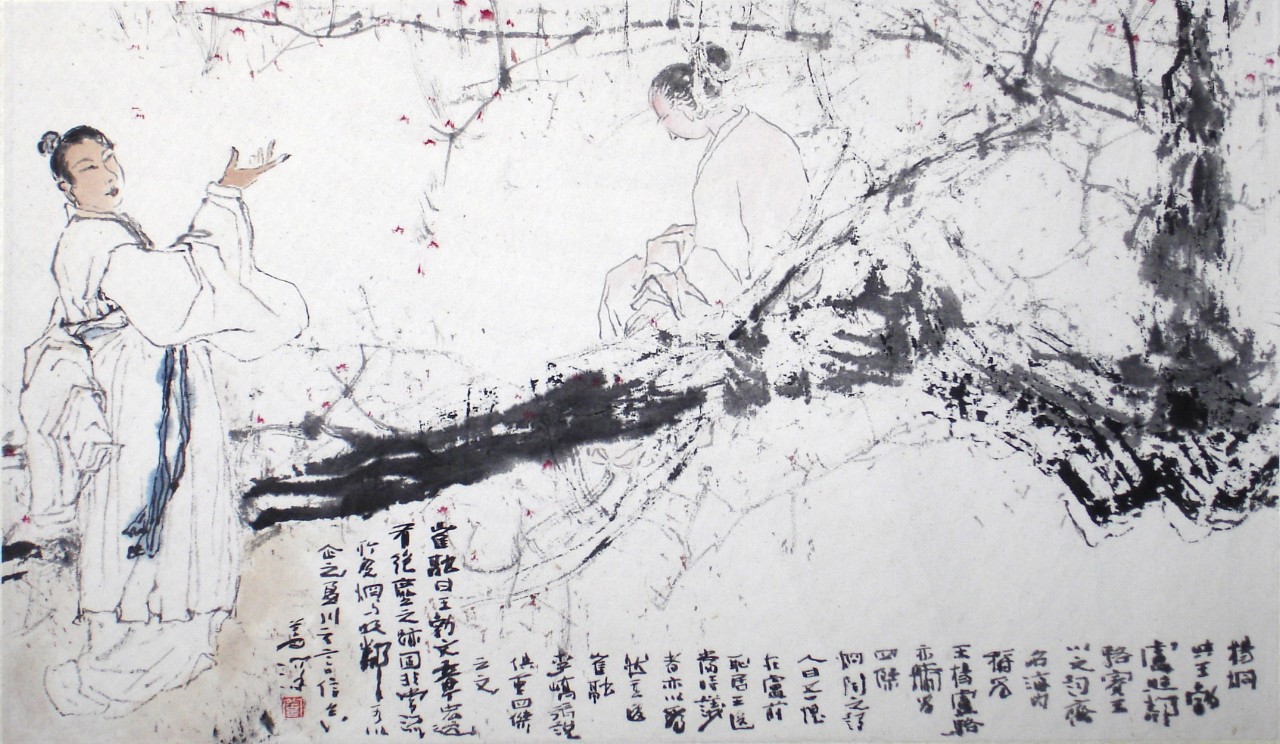 楊炯
與王勃
盧照鄰
駱賓王
以文詞齊
名海內
稱為
王楊盧駱
亦號為
四傑
炯聞之謂
人曰吾愧
在盧前
恥居王後
當時議
者亦以為
然其後
崔融
李嶠張說
俱重四傑
之文
崔融曰王勃文章宏逸
有絕塵之跡固非常流
所及炯與照鄰可以
企之盈川之言信矣